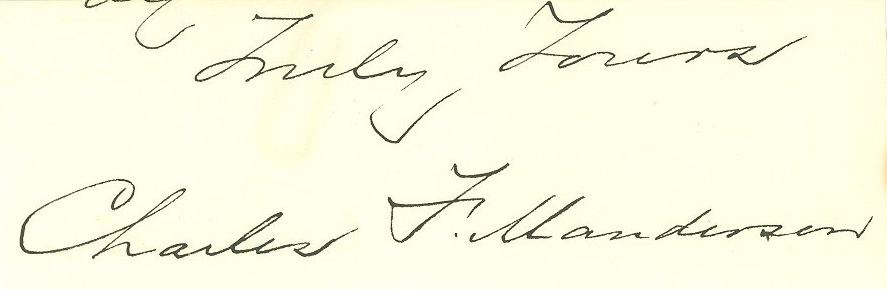 Truly Yours
Charles F. Manderson